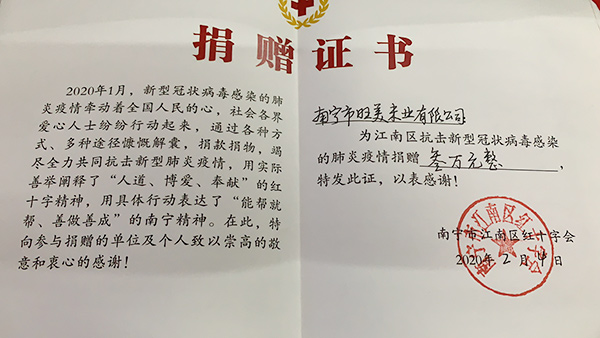 捐赠证书
2020年1月，新型冠状病毒感染的肺
炎疫情牵动着全国人民的心，社会各界
爱心人士纷纷行动起来，通过各种方
式、多种途径慷慨解囊，捐款捐物，竭
尽全力共同抗击新型肺炎疫情，用实际
善举阐释了“人道、博爱、奉献”的红
十字精神，用具体行动表达了“能帮就
帮、善做善成”的南宁精神。在此，特
向参与捐赠的单位及个人致以崇高的敬
意和衷心的感谢！
南宁市旺美米业有限公司
为江南区抗击新型冠状病毒感染
的肺炎疫情捐赠叁万元整，
特发此证，以表感谢！
南宁市江南区红十字会
2020年2月4日
南宁市江南区红十字会